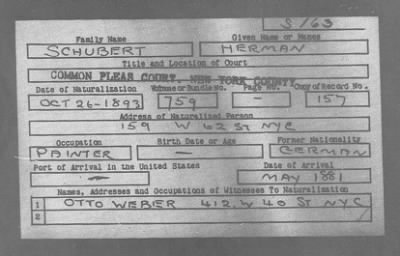 S 163
Family Name Given Name or Names
SCHUBERT HERMAN
Title and Location of Court
COMMON PLEAS COURT, NEW YORK COUNTY
Date of Naturalization Volume or Bundle No. Page No. Copy of Record No.
OCT 26-1893 759 - 157
Address of Naturalized Person
159 W 62 ST NYC
Occupation Birth Date or Age Former Nationality
PAINTER — GERMAN
Port of Arrival in the United States Date of Arrival
— MAY 1881
Names, Addresses and Occupations of Witnesses To Naturalization
1 OTTO WEBER 412. W 40 ST NYC
2